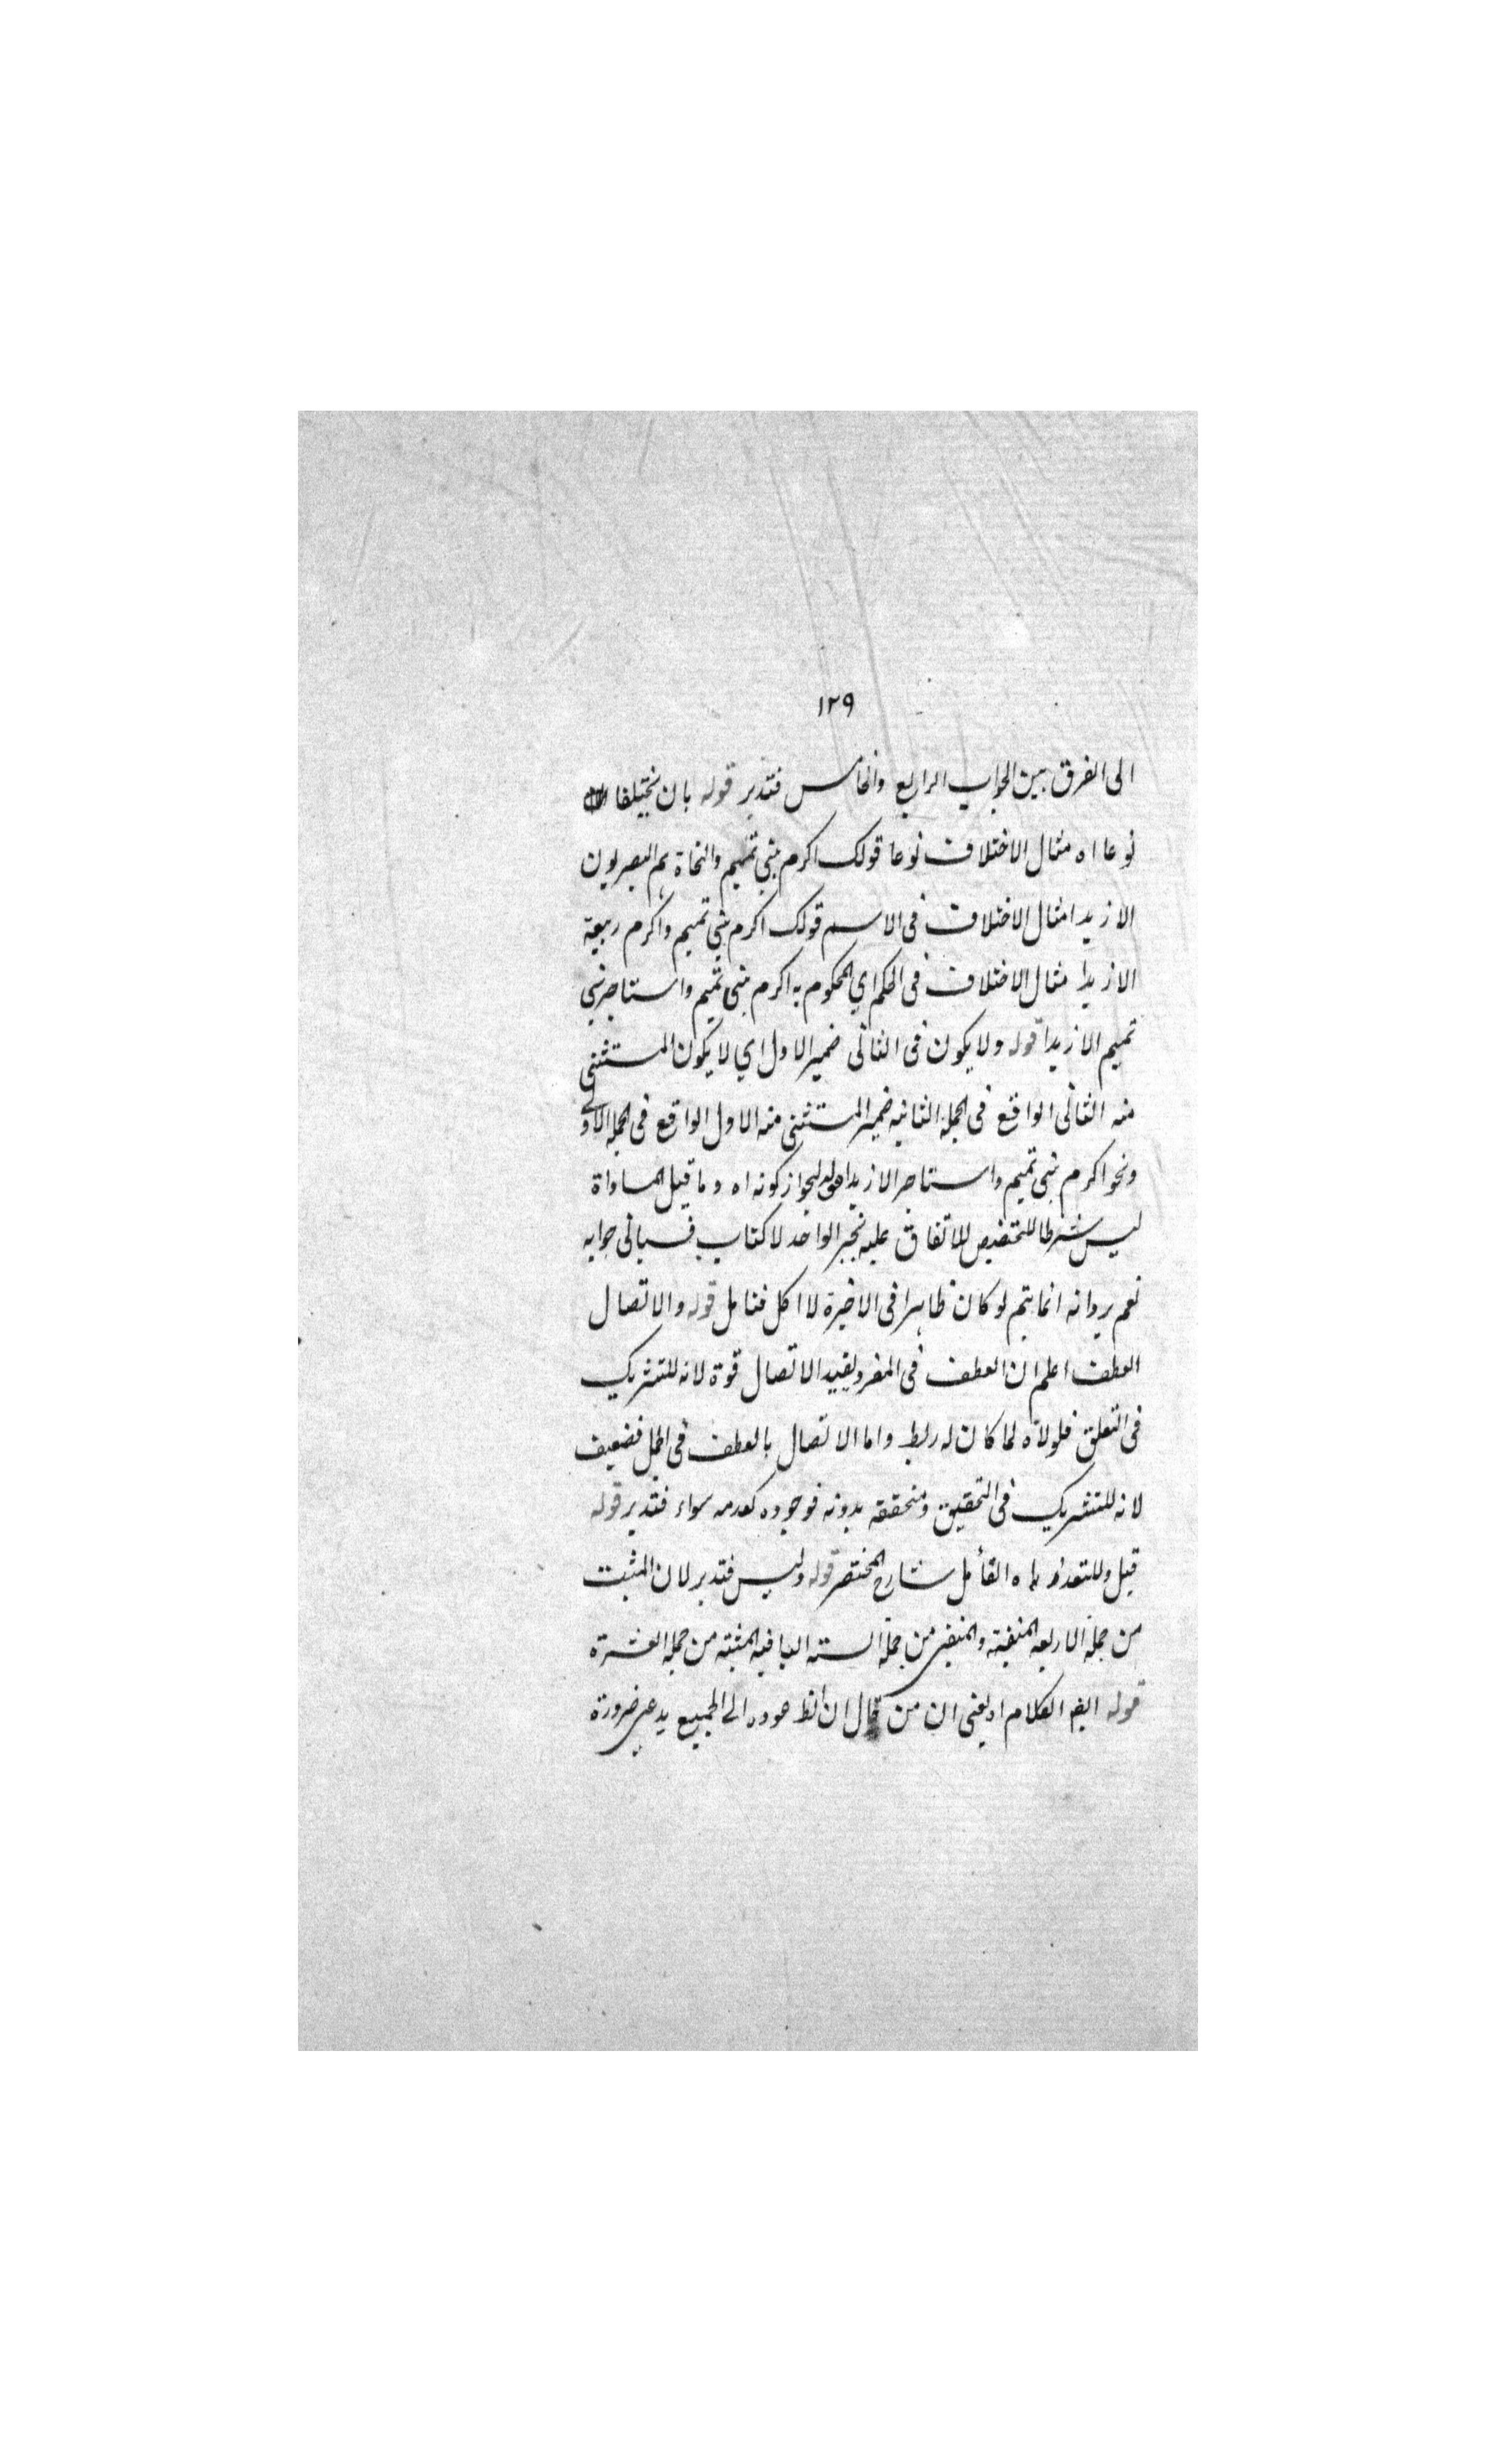 ١٢٩
الى الفرق بين الجواب الرابع والخامس فتدبر قوله بان يختلفا
نوعا اه مثال الاختلاف نوعا قولك اكرم بني تميم والنحاة هم البصريون
الا زيدا مثال الاختلاف فى الاسم قولك اكرم بني تميم واكرم ربيعة
الا زيدا مثال الاختلاف فى الحكم اي المحكوم به اكرم بنى تميم واستاجر بني
تميم الا زيدا قوله ولا يكون فى الثانى ضمير الاول اي لا يكون المستثنى
منه الثانى الواقع فى الجملة الثانيه ضمير المستثنى منه الاول الواقع فى الجملة الاولى
ونحو اكرم بنى تميم واستاجر الا زيدا قوله لجواز كونه اه وما قيل المساواة
ليس شرطا للتخصيص للاتفاق عليه بخبر الواحد لا كتاب فسيأتى جوابه
نعم يرد انه انما يتم لو كان ظاهرا فى الاخيرة لا اكل فتامل قوله والاتصال
العطف اعلم ان العطف فى المفرد يفيد الاتصال قوة لانه للتشريك
فى التعلق فلولاه لما كان له ربط واما الاتصال بالعطف فى الجمل فضعيف
لانه للتشريك فى التحقيق ومتحققه بدونه فوجوده كعدمه سواء فتدبر قوله
قيل وللتعدد اه القائل شارح المختصر قوله وليس فتدبر لان المثبت
من جملة الاربعه المنفية والمنفى من جملة السته الباقيه المثبته من جملة العشرة
قوله ايضا الكلام اه يعنى ان من قال ان الظ عوده الى الجميع يدعى ضرورة